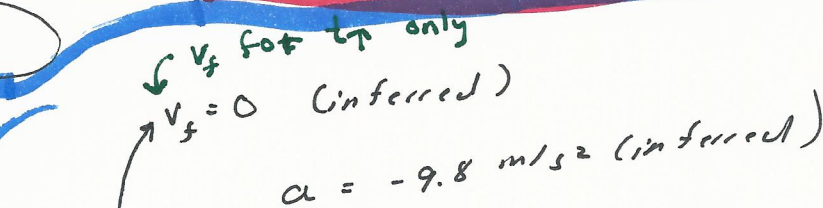 v_f for t↑ only
v_f = 0 (inferred)
a = -9.8 m/s² (inferred)